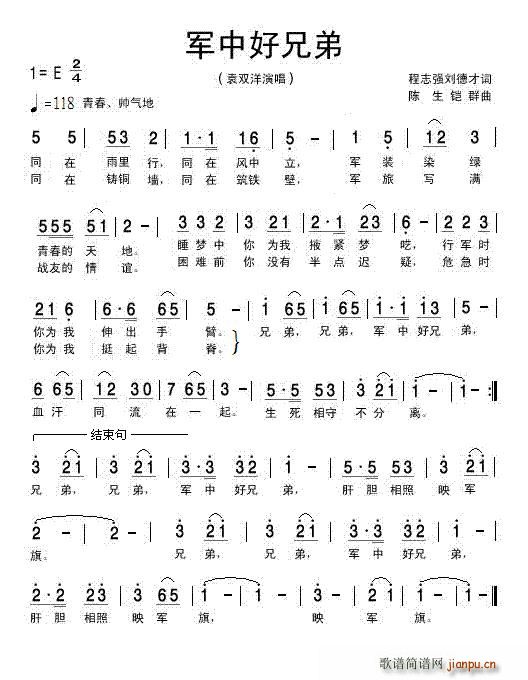 军中好兄弟
1=E 2/4
（袁双洋演唱）
程志强刘德才词
♩=118 青春、帅气地
陈 生 铠 群曲
5 5 | 53 2 | 1·1 16 | 5 - | 5 5 | 12 3 |
同 在 雨里 行，同 在 风中 立， 军 装 染 绿
同 在 铸铜 墙，同 在 筑铁 壁， 军 旅 写 满
555 51 | 2 - | 223 2 | 3 21 | 2·1 23 | 2 223 |
青春的 天 地。 睡梦中 你 为我 掖 紧 梦 呓，行军时
战友的 情 谊。 困难前 你 没有 半 点 迟 疑，危急时
21 6 | 6·6 65 | 5 - | 1 65 | 1 65 | 1·1 13 |
你为 我 伸 出 手 臂。 兄 弟， 兄 弟， 军 中 好兄 弟，
你为 我 挺 起 背 脊。
6 65 | 12 30 | 7 65 | 5·5 53 | 3 21 | 1 - | 1 - :‖
血汗 同 流 在 一 起。 生 死 相守 不 分 离。
结束句
3 21 | 3 21 | 3·3 32 | 1 - | 5·5 53 | 3 21 |
兄 弟， 兄 弟， 军 中 好兄 弟， 肝 胆 相照 映 军
2 - | 2 - | 3 21 | 3 21 | 3·3 32 | 1 - |
旗。 兄 弟， 兄 弟， 军 中 好兄 弟，
2·2 23 | 3 65 | 1 - | 1 - | 3 65 | 1 - | 1 - ‖
肝 胆 相照 映 军 旗， 映 军 旗。
歌谱简谱网
jianpu.cn